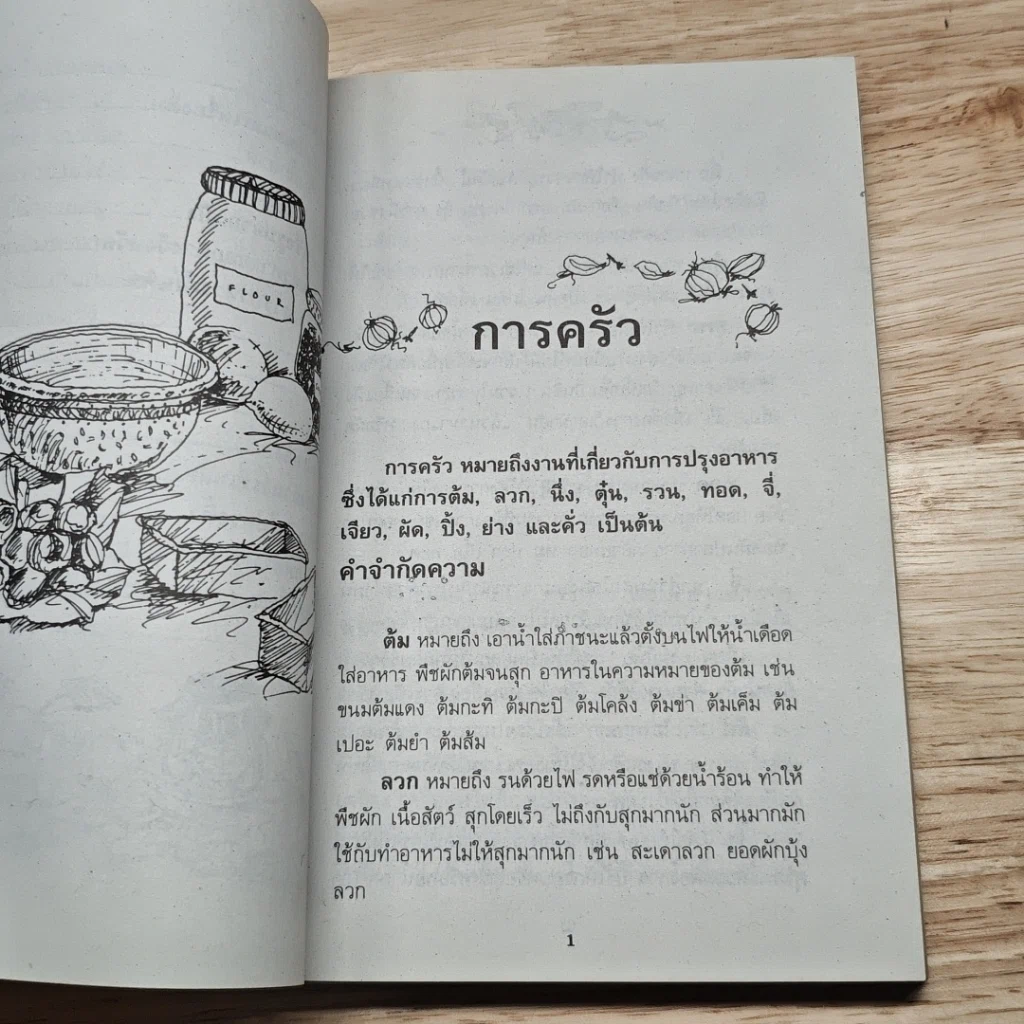 FLOUR
การครัว
การครัว หมายถึงงานที่เกี่ยวกับการปรุงอาหาร
ซึ่งได้แก่การต้ม, ลวก, นึ่ง, ตุ๋น, รวน, ทอด, จี่,
เจียว, ผัด, ปิ้ง, ย่าง และคั่ว เป็นต้น
คำจำกัดความ
ต้ม หมายถึง เอาน้ำใส่ภาชนะแล้วตั้งบนไฟให้น้ำเดือด
ใส่อาหาร พืชผักต้มจนสุก อาหารในความหมายของต้ม เช่น
ขนมต้มแดง ต้มกะทิ ต้มกะปิ ต้มโคล้ง ต้มข่า ต้มเค็ม ต้ม
เปอะ ต้มยำ ต้มส้ม
ลวก หมายถึง รนด้วยไฟ รดหรือแช่ด้วยน้ำร้อน ทำให้
พืชผัก เนื้อสัตว์ สุกโดยเร็ว ไม่ถึงกับสุกมากนัก ส่วนมากมัก
ใช้กับทำอาหารไม่ให้สุกมากนัก เช่น สะเดาลวก ยอดผักบุ้ง
ลวก
1